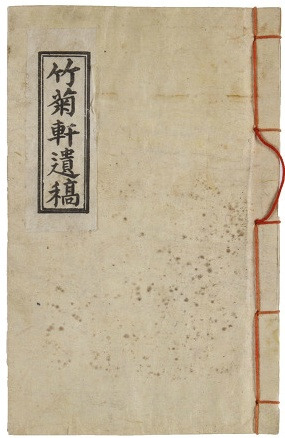 竹菊軒遺稿